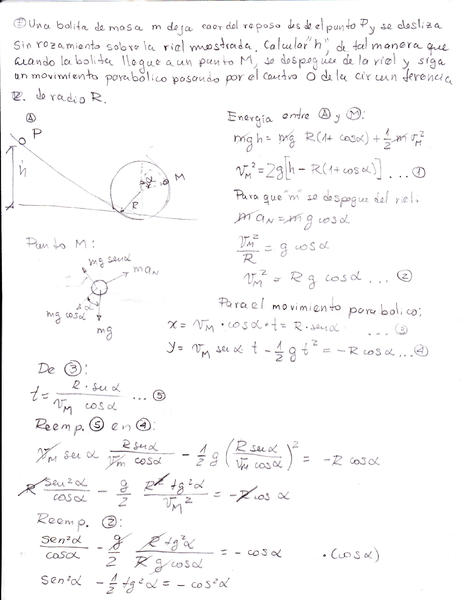 ② Una bolita de masa m deja caer del reposo desde el punto P y se desliza
sin rozamiento sobre la riel mostrada. Calcular "h", de tal manera que
cuando la bolita llegue a un punto M, se despegue de la riel y siga
un movimiento parabólico pasando por el centro O de la circunferencia
de radio R.
Ⓐ
P
h
R
α
M
Energía entre Ⓐ y Ⓜ:
mgh = mg R(1+ cosα) + 1/2 m v_M²
v_M² = 2g[h - R(1+cosα)] ... ①
Para que "m" se despegue del riel.
m a_N = mg cosα
v_M²/R = g cosα
v_M² = R g cosα ... ②
Punto M:
mg senα
m a_N
mg cosα
α
mg
Para el movimiento parabolico:
x = v_M · cosα · t = R · senα ... ③
y = v_M senα t - 1/2 g t² = -R cosα ... ④
De ③:
t = R · senα / v_M cosα ... ⑤
Reemp. ⑤ en ④:
v_M senα R senα / v_M cosα - 1/2 g (R senα / v_M cosα)² = -R cosα
R sen²α / cosα - g/2 R² tg²α / v_M² = -R cos α
Reemp. ②:
sen²α / cosα - g/2 R tg²α / R g cosα = - cosα · (cosα)
sen²α - 1/2 tg²α = - cos²α